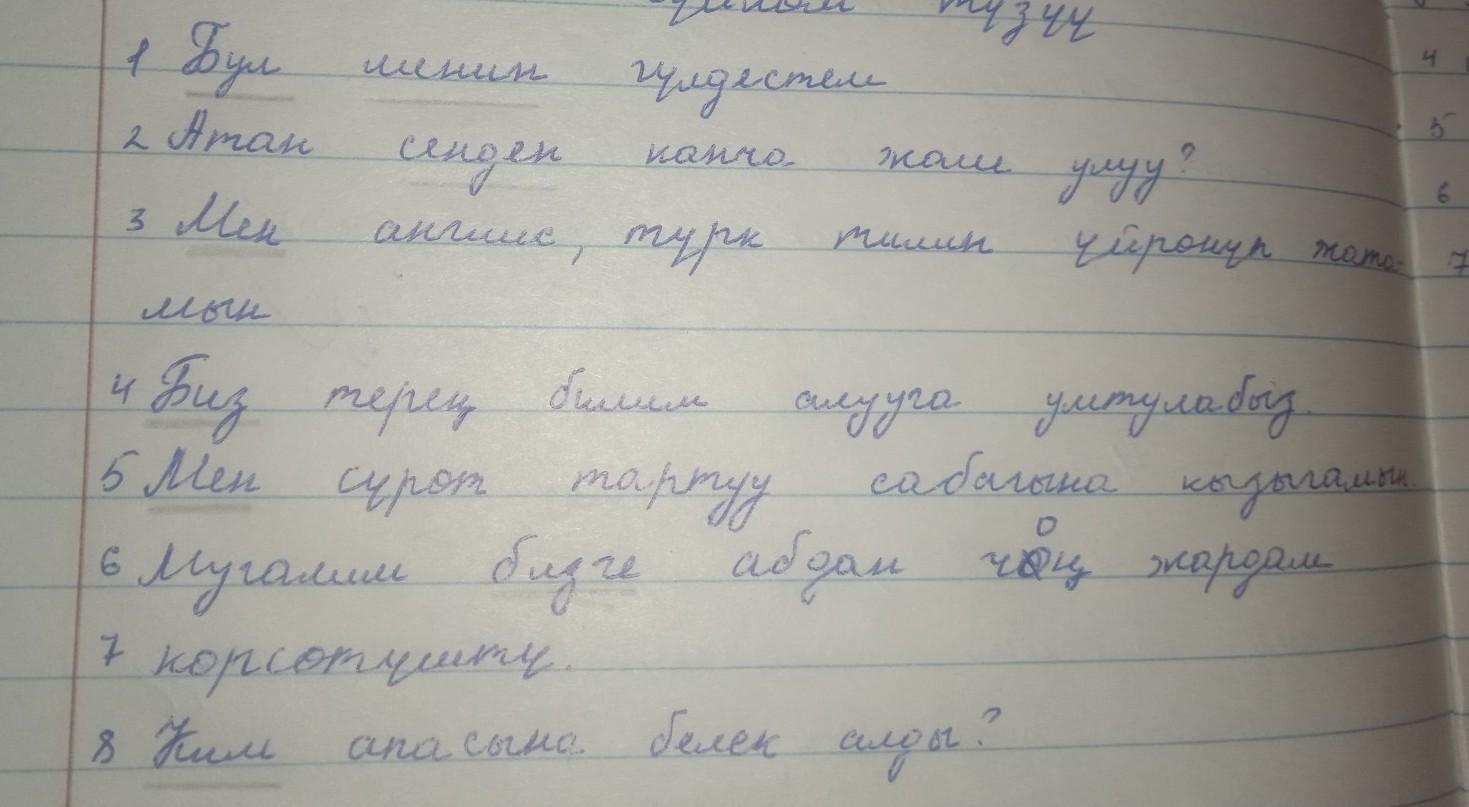 түзүү
1 Бул менин гүлдестем
2 Атан сенден канча жаш улуу?
3 Мен англис, түрк тилин үйронүп жата-
мын
4 Биз терең билим алууга умтулабыз.
5 Мен сүрот тартуу сабагына кызыгамын.
6 Мугалим бизге абдан чоң жардам
7 корсотүштү.
8 Ким апасына белек алды?
4
5
6
7